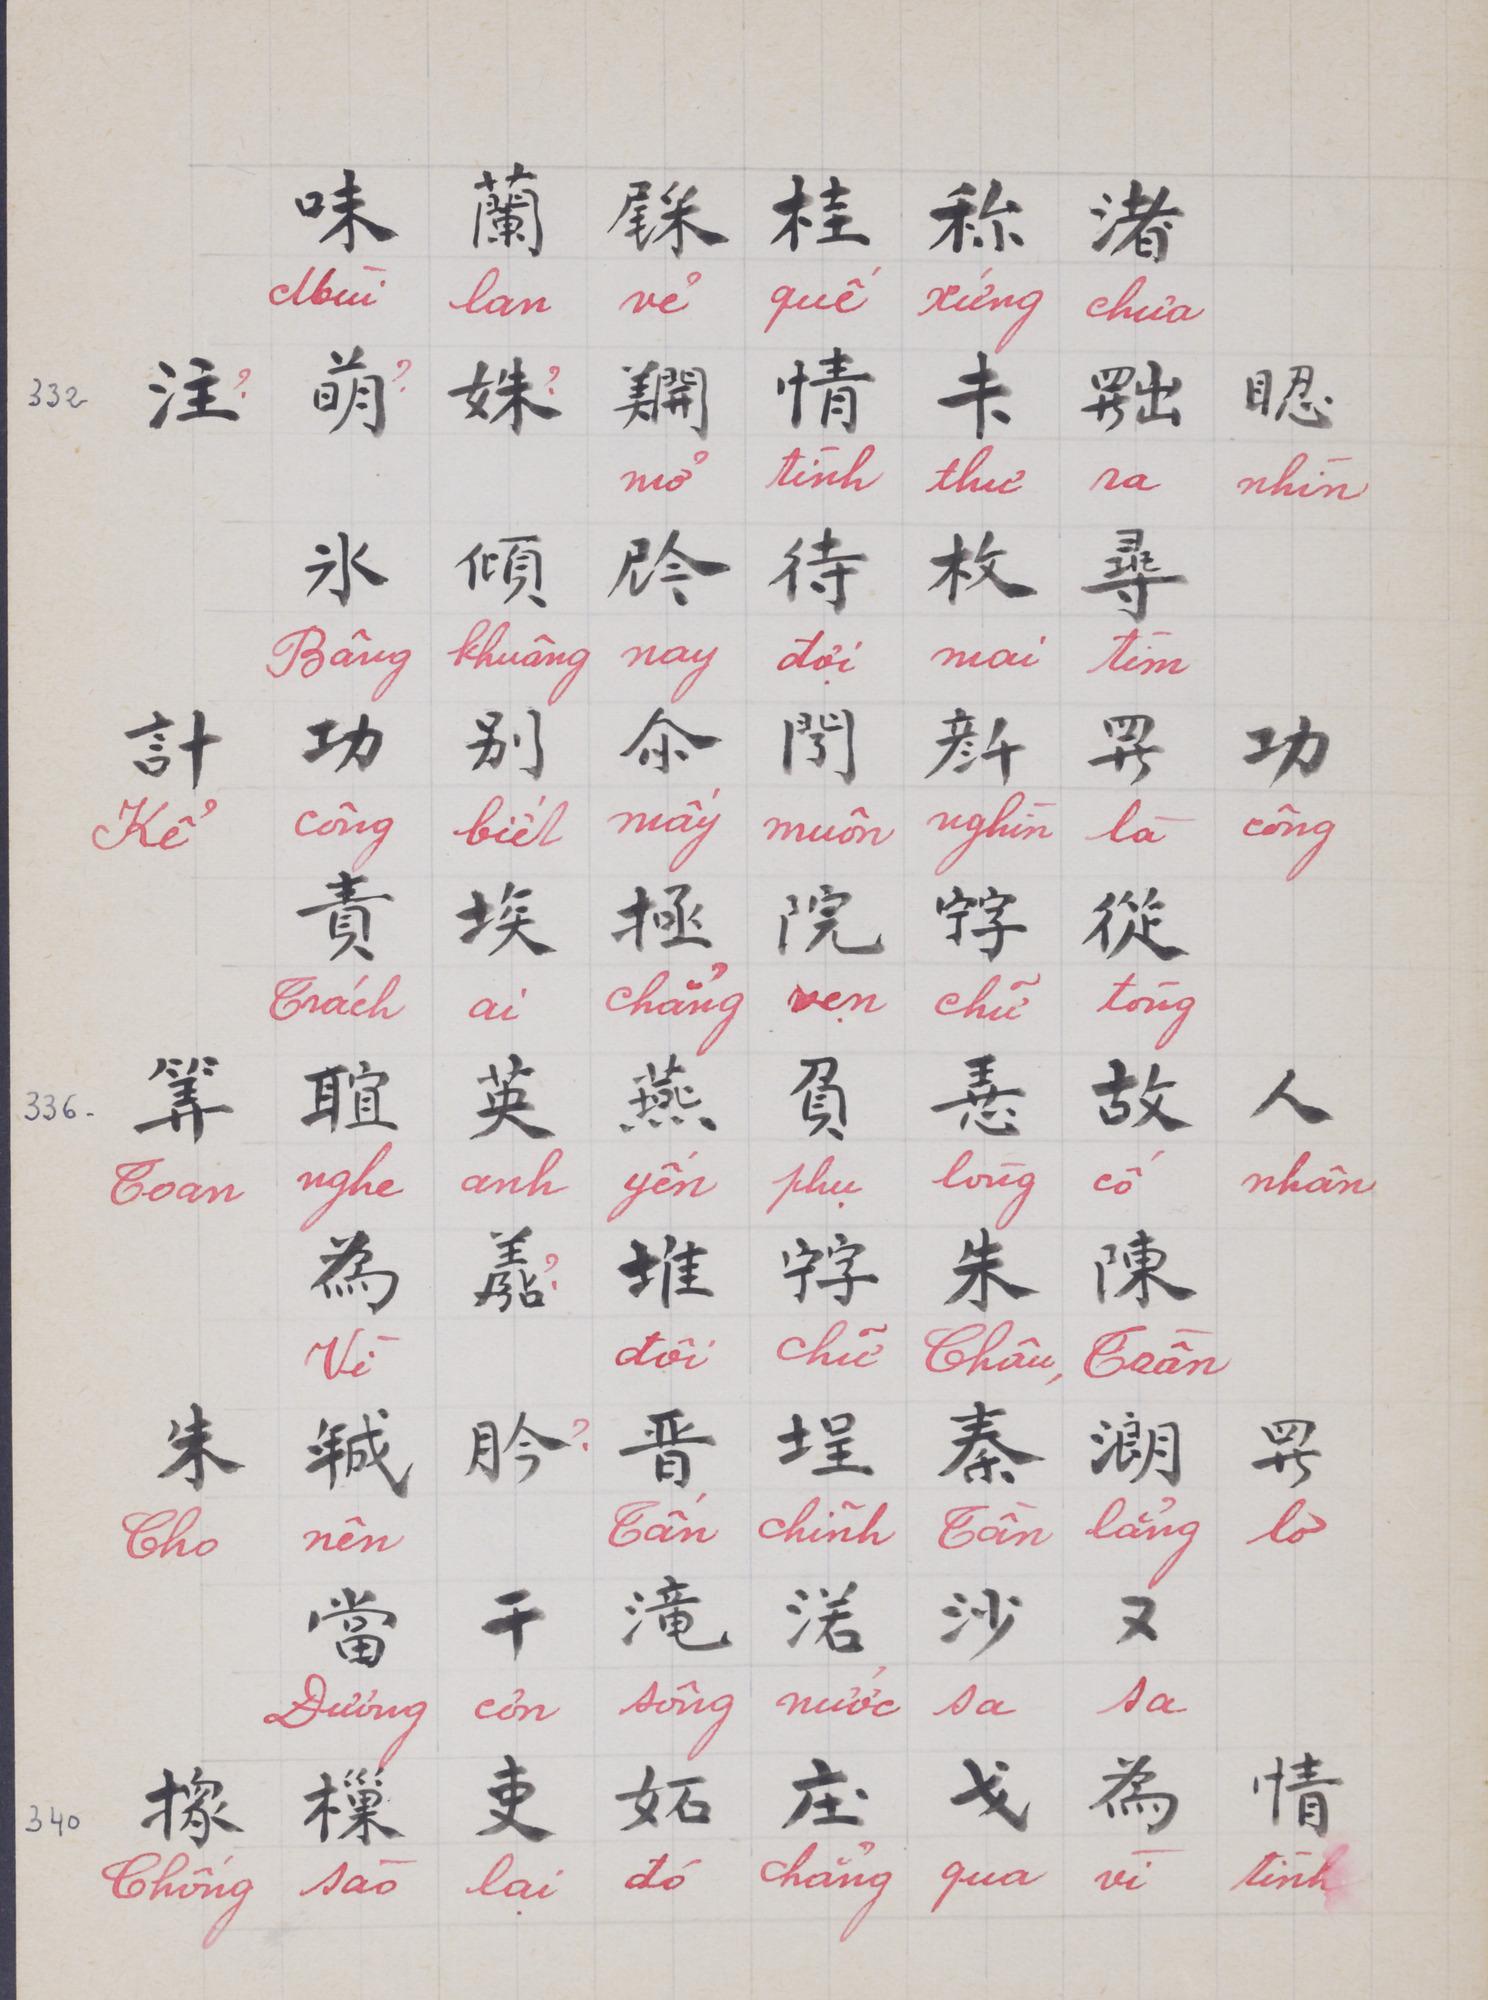 味 蘭 𦤠 桂 称 渚
Mùi lan vẻ quế xứng chưa
332 注? 萌? 姝? 𨷑 情 未 𦋦 𥆾
mở tình thư ra nhìn
氷 傾 𫢩 待 枚 尋
Bâng khuâng nay đợi mai tìm
計 功 别 尒 𨷈 𠦳 罗 功
Kể công biết mấy muôn nghìn là công
責 埃 拯 院 𡨸 從
Trách ai chẳng vẹn chữ tòng
336- 筭 聢 英 燕 負 𢚸 故 人
Toan nghe anh yến phụ lòng cố nhân
為 ? 堆 𡨸 朱 陳
Vì đôi chữ Châu, Trần
朱 𢧚 肹? 晋 埕 秦 𣼽 罗
Cho nên Tấn chĩnh Tần lẳng lơ
當 干 滝 渃 沙 又
Đương cơn sông nước sa sa
340 𢶢 樔 吏 妬 庄 戈 為 情
Chống sào lại đó chẳng qua vì tình